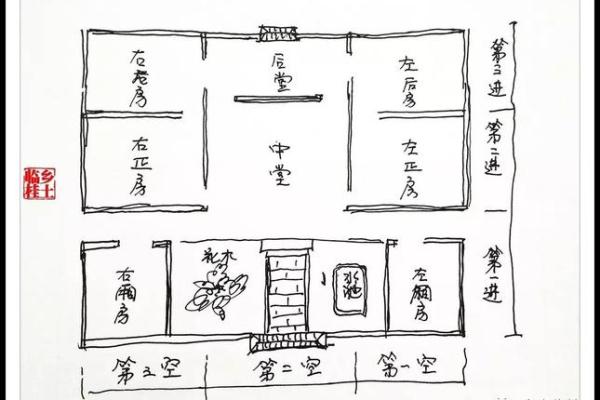 右后房
后堂
左后房
第三进
右正房
中堂
左正房
第二进
乡土
临桂
右厢房
花木
水池
左厢房
第一进
第三空
第二空
第一空